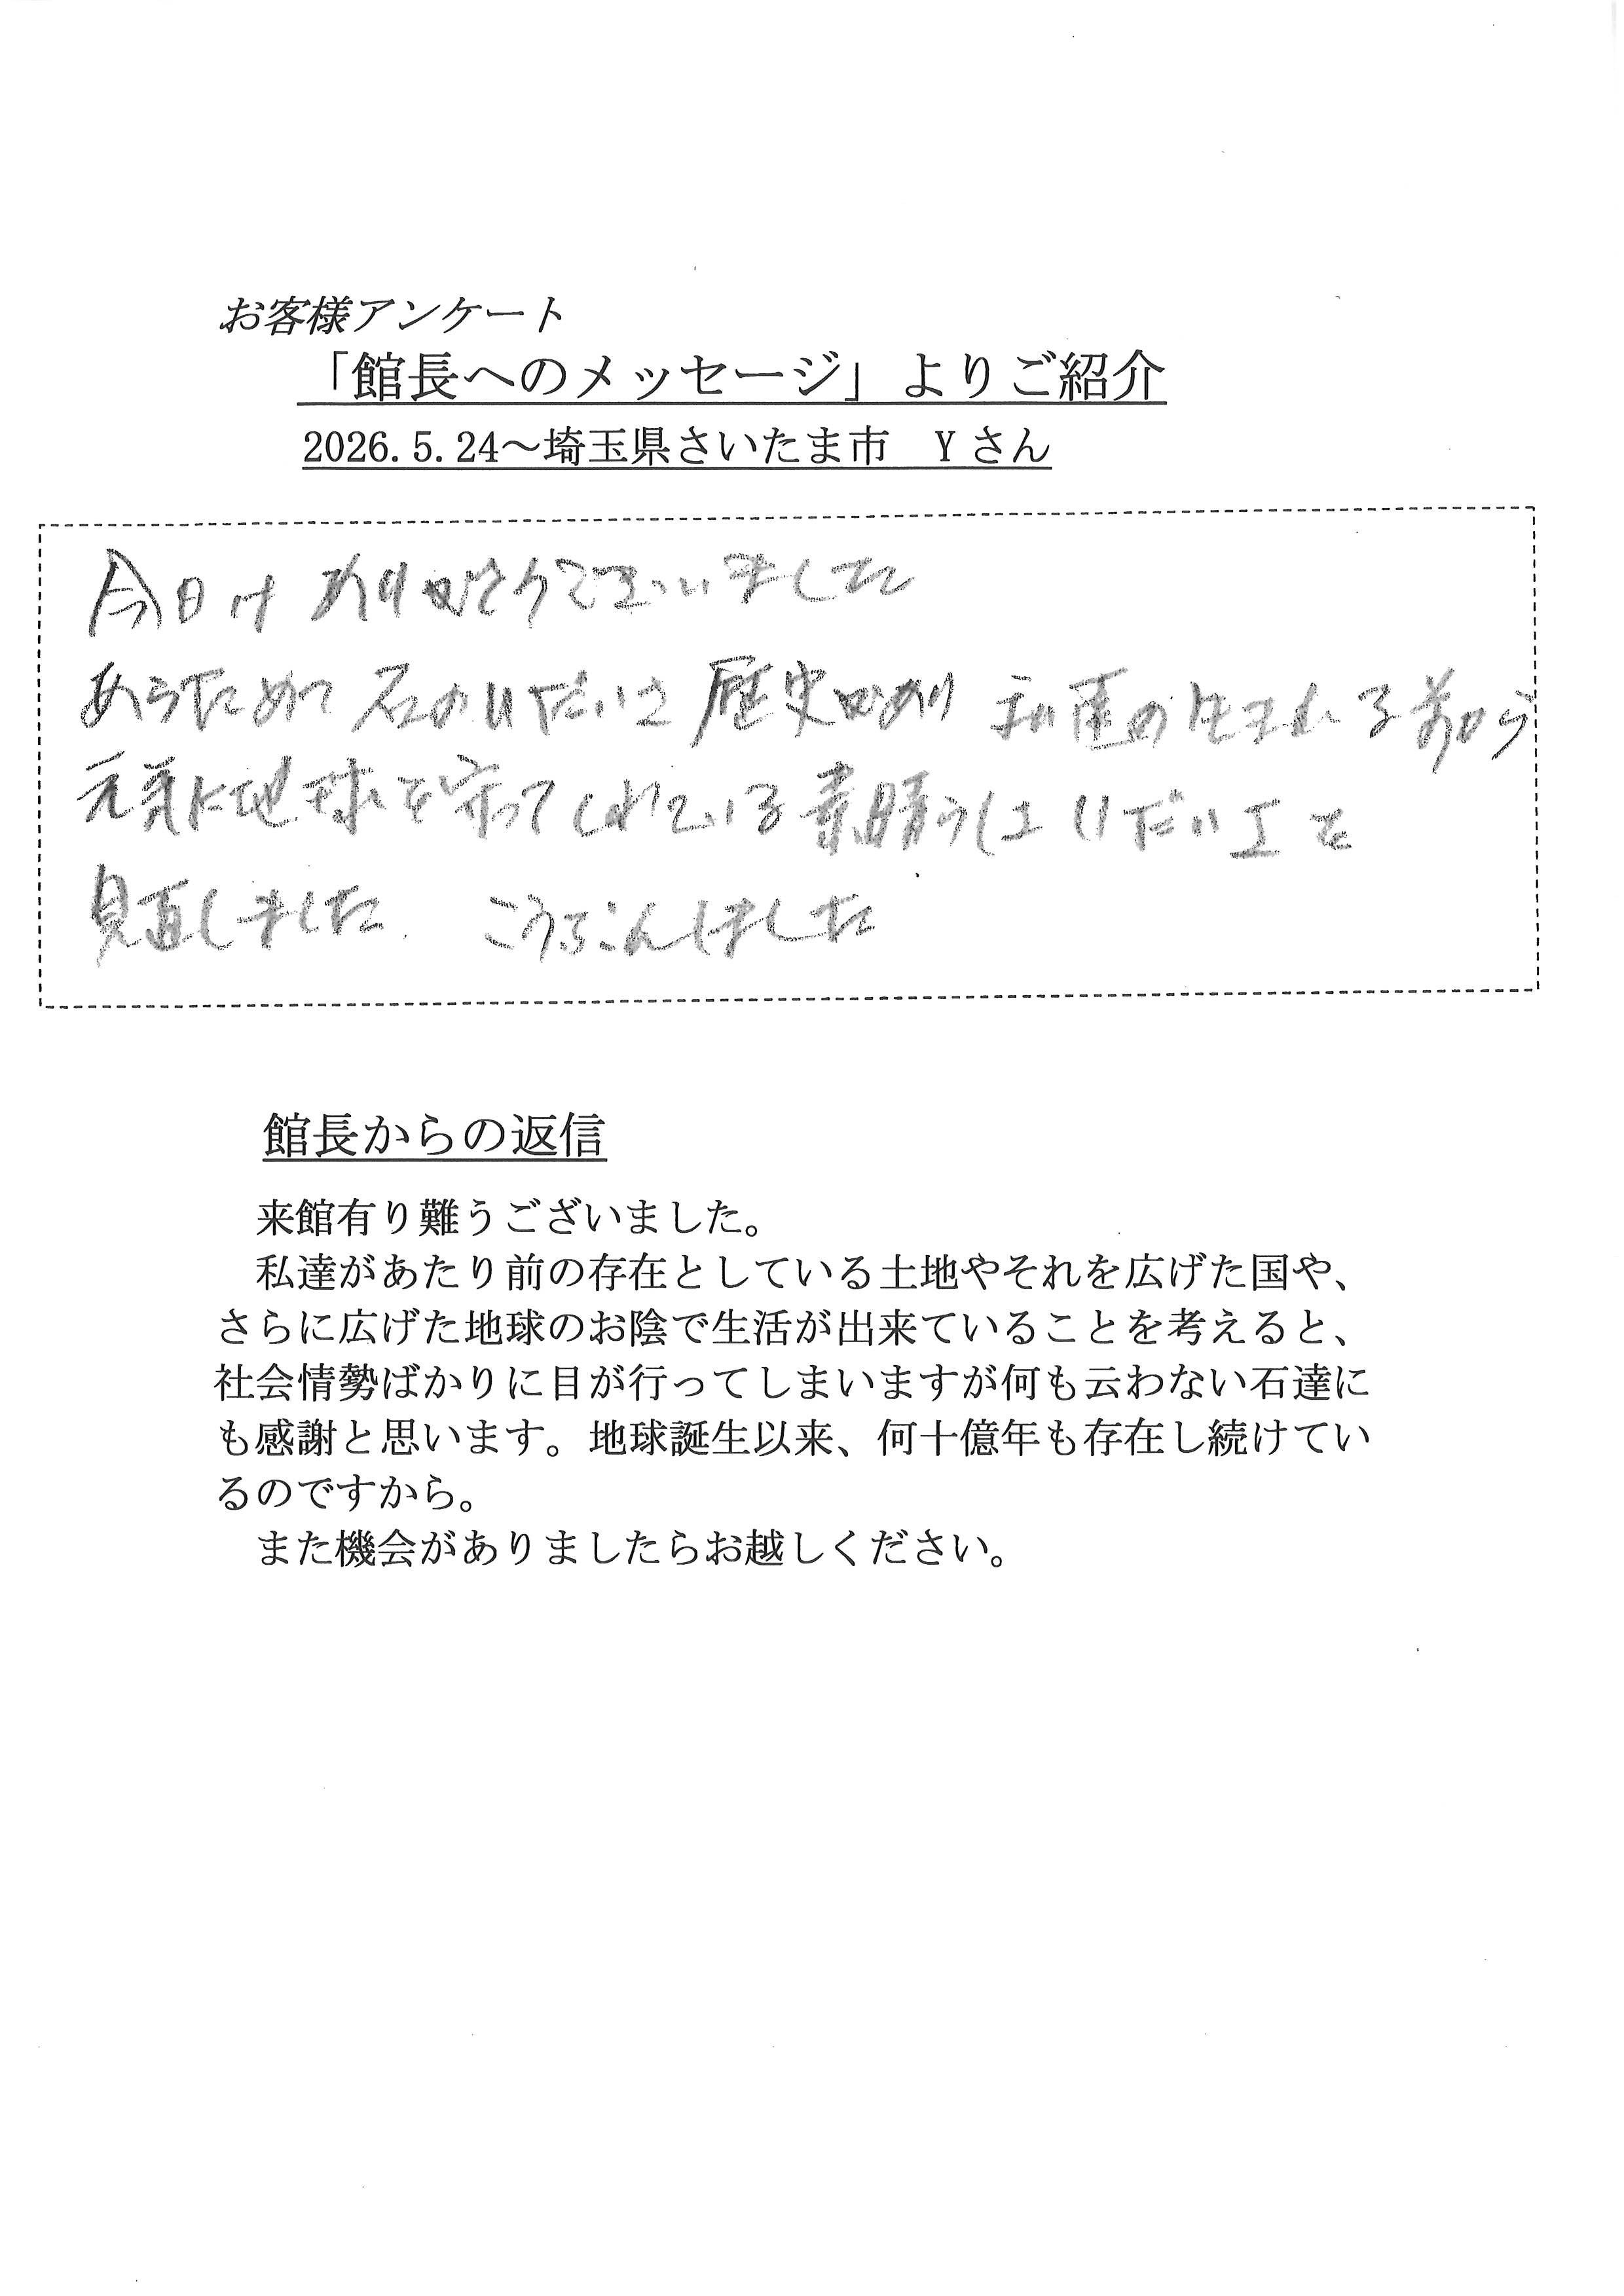 お客様アンケート
「館長へのメッセージ」よりご紹介
2026.5.24～埼玉県さいたま市　Yさん
今日は ありがとうございました
あらためて 石のいだいさ 歴史があり 私達の生まれる前から
元気に地球を守ってくれている素晴らしさ いだいさを
見直しました こうふんしました
館長からの返信
来館有り難うございました。
私達があたり前の存在としている土地やそれを広げた国や、
さらに広げた地球のお陰で生活が出来ていることを考えると、
社会情勢ばかりに目が行ってしまいますが何も云わない石達に
も感謝と思います。地球誕生以来、何十億年も存在し続けてい
るのですから。
また機会がありましたらお越しください。